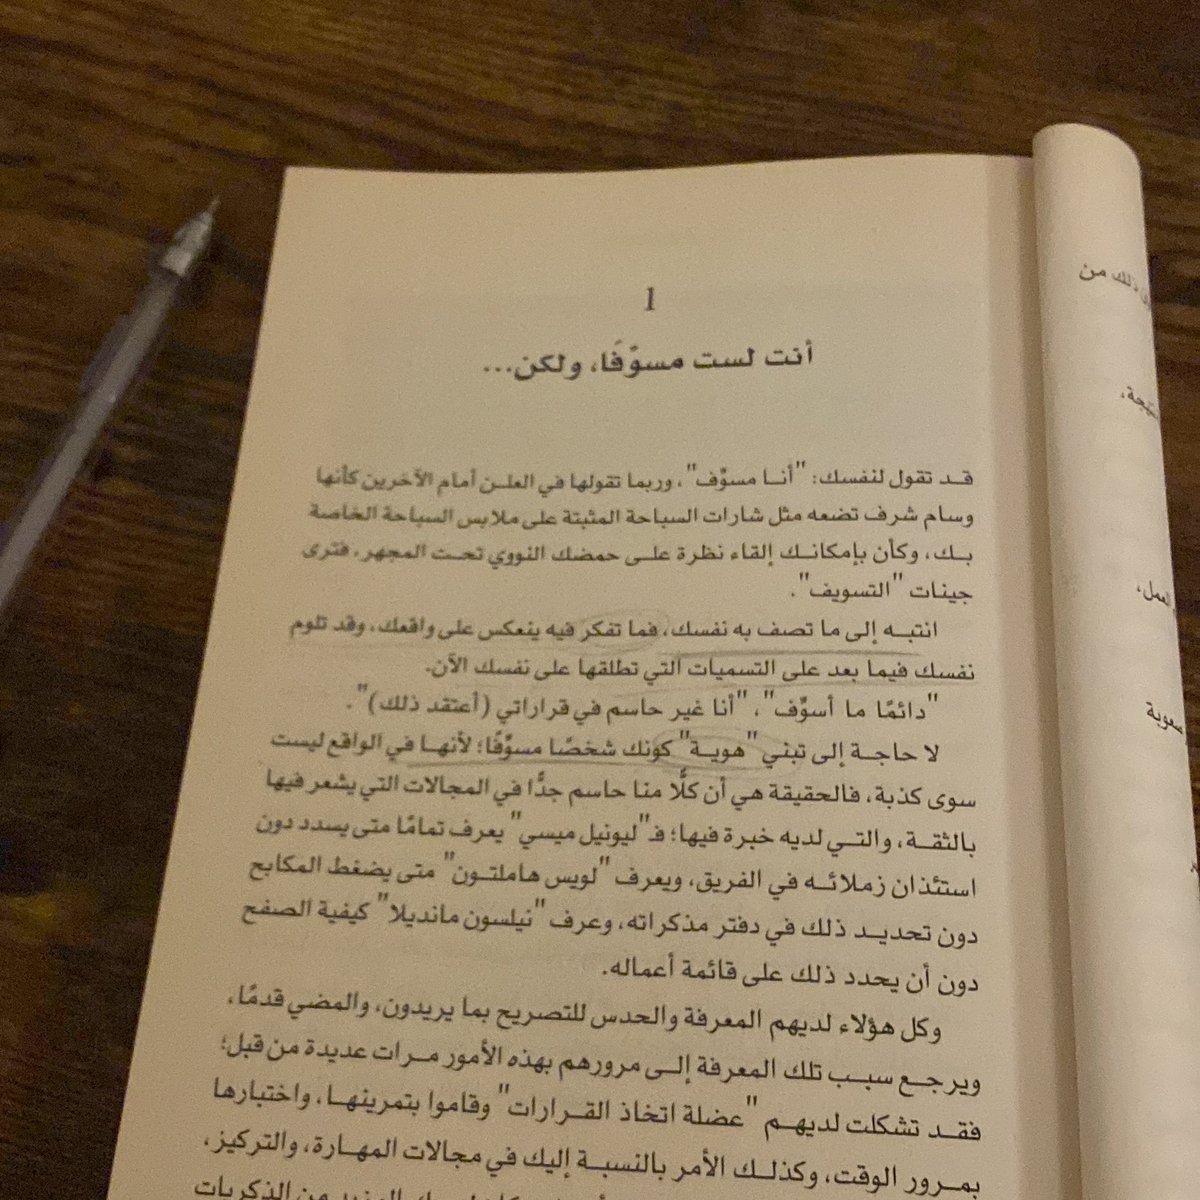 1
أنت لست مسوِّفًا، ولكن...
قد تقول لنفسك: "أنا مسوِّف"، وربما تقولها في العلن أمام الآخرين كأنها
وسام شرف تضعه مثل شارات السباحة المثبتة على ملابس السباحة الخاصة
بك، وكأن بإمكانك إلقاء نظرة على حمضك النووي تحت المجهر، فترى
جينات "التسويف".
انتبه إلى ما تصف به نفسك، فما تفكر فيه ينعكس على واقعك، وقد تلوم
نفسك فيما بعد على التسميات التي تطلقها على نفسك الآن.
"دائمًا ما أسوِّف"، "أنا غير حاسم في قراراتي (أعتقد ذلك)".
لا حاجة إلى تبني "هوية" كونك شخصًا مسوِّفًا؛ لأنها في الواقع ليست
سوى كذبة، فالحقيقة هي أن كلًّا منا حاسم جدًّا في المجالات التي يشعر فيها
بالثقة، والتي لديه خبرة فيها؛ فـ"ليونيل ميسي" يعرف تمامًا متى يسدد دون
استئذان زملائه في الفريق، ويعرف "لويس هاملتون" متى يضغط المكابح
دون تحديد ذلك في دفتر مذكراته، وعرف "نيلسون مانديلا" كيفية الصفح
دون أن يحدد ذلك على قائمة أعماله.
وكل هؤلاء لديهم المعرفة والحدس للتصريح بما يريدون، والمضي قدمًا،
ويرجع سبب تلك المعرفة إلى مرورهم بهذه الأمور مرات عديدة من قبل؛
فقد تشكلت لديهم "عضلة اتخاذ القرارات" وقاموا بتمرينها، واختبارها
بمرور الوقت، وكذلك الأمر بالنسبة إليك في مجالات المهارة، والتركيز،
من الذكريات
ذلك من
العمل،
صعوبة